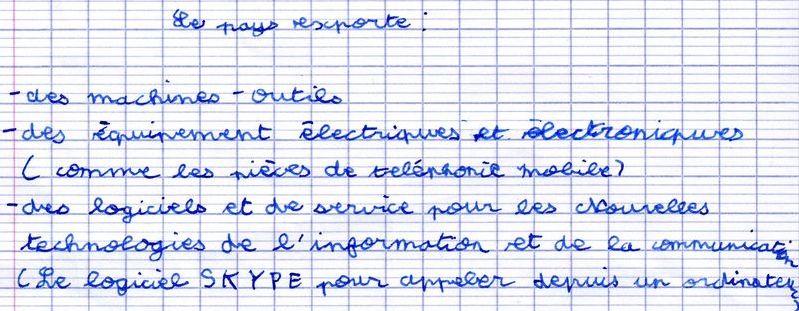 Le pays exporte :
- des machines - outils
- des équipement électriques et électroniques
( comme les pièces de teléphonie mobile)
- des logiciels et de service pour les Nouvelles
technologies de l'information et de la communication
(Le logiciel SKYPE pour appeler depuis un ordinateur)